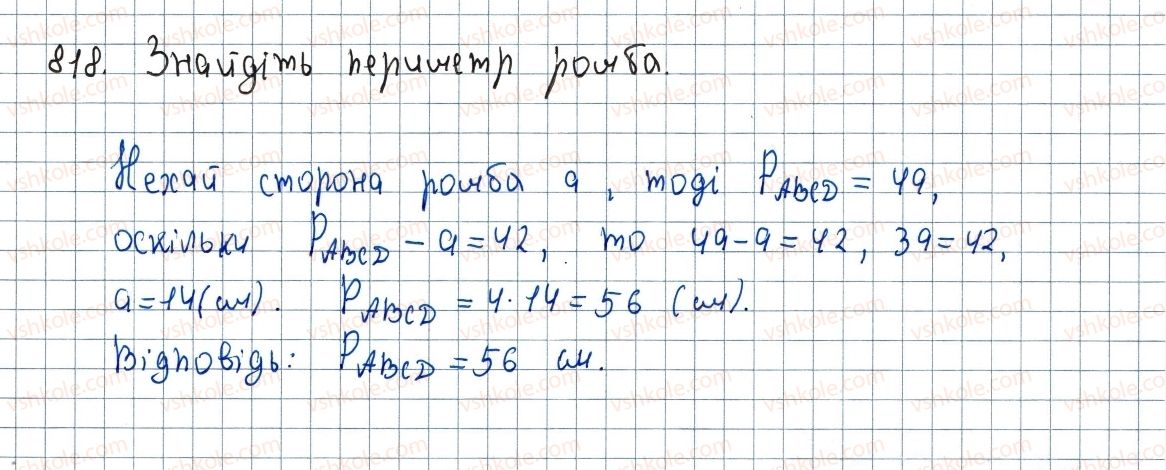 818. Знайдіть периметр ромба.
Нехай сторона ромба a, тоді P_ABCD = 4a,
оскільки P_ABCD - a = 42, то 4a - a = 42, 3a = 42,
a = 14 (см). P_ABCD = 4 · 14 = 56 (см).
Відповідь: P_ABCD = 56 см.